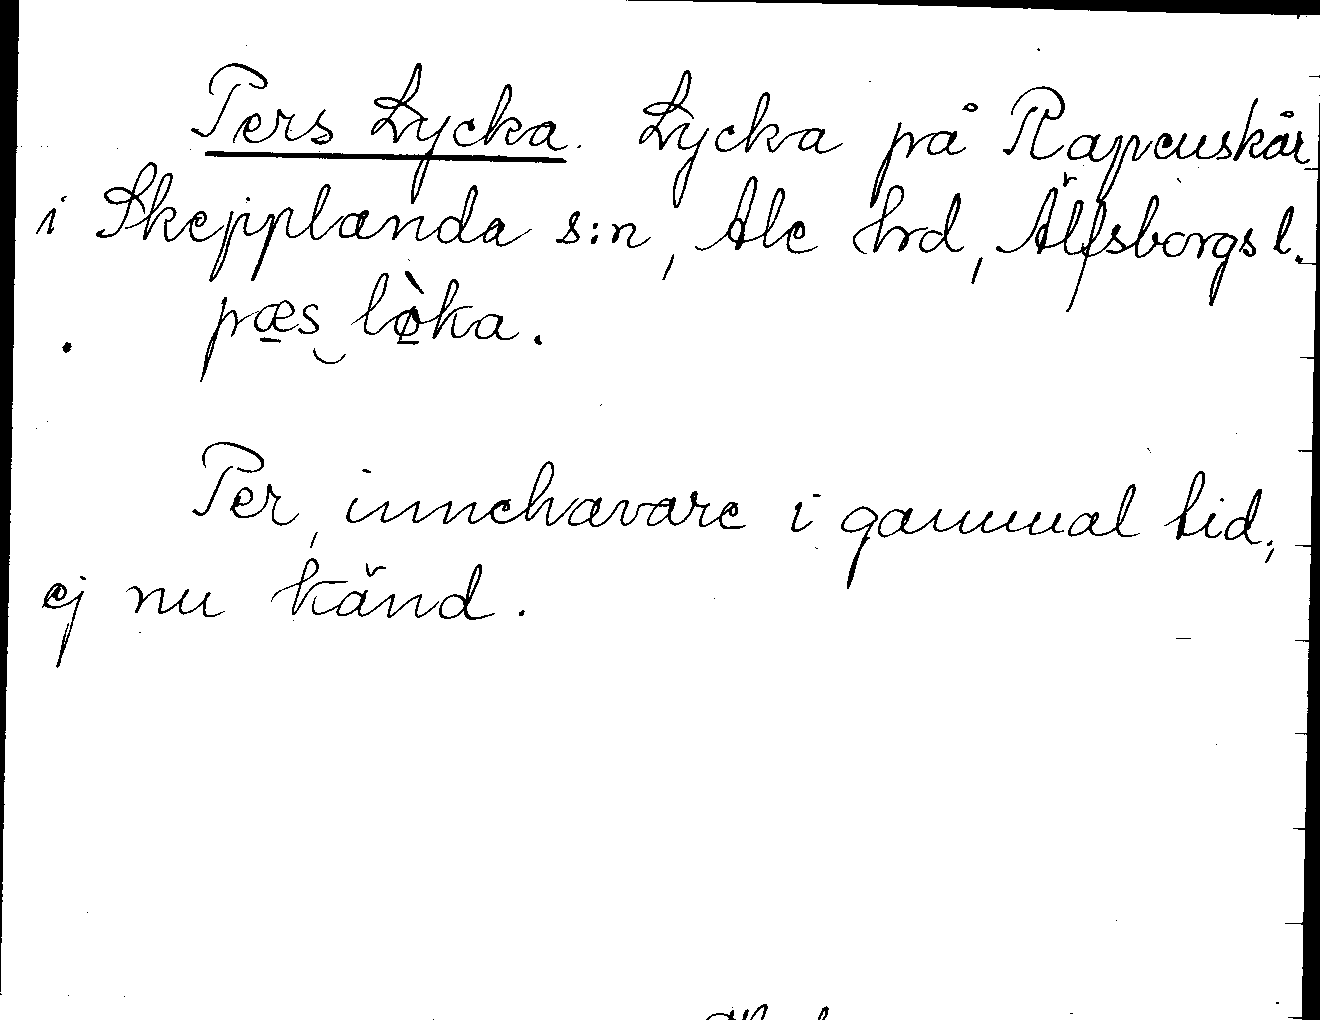 Pers Lycka. Lycka på Rapenskår
i Skepplanda s:n, Ale hrd, Älfsborgs l.
. pæs‿lø̀ka.
Per, innehavare i gammal tid,
ej nu känd.